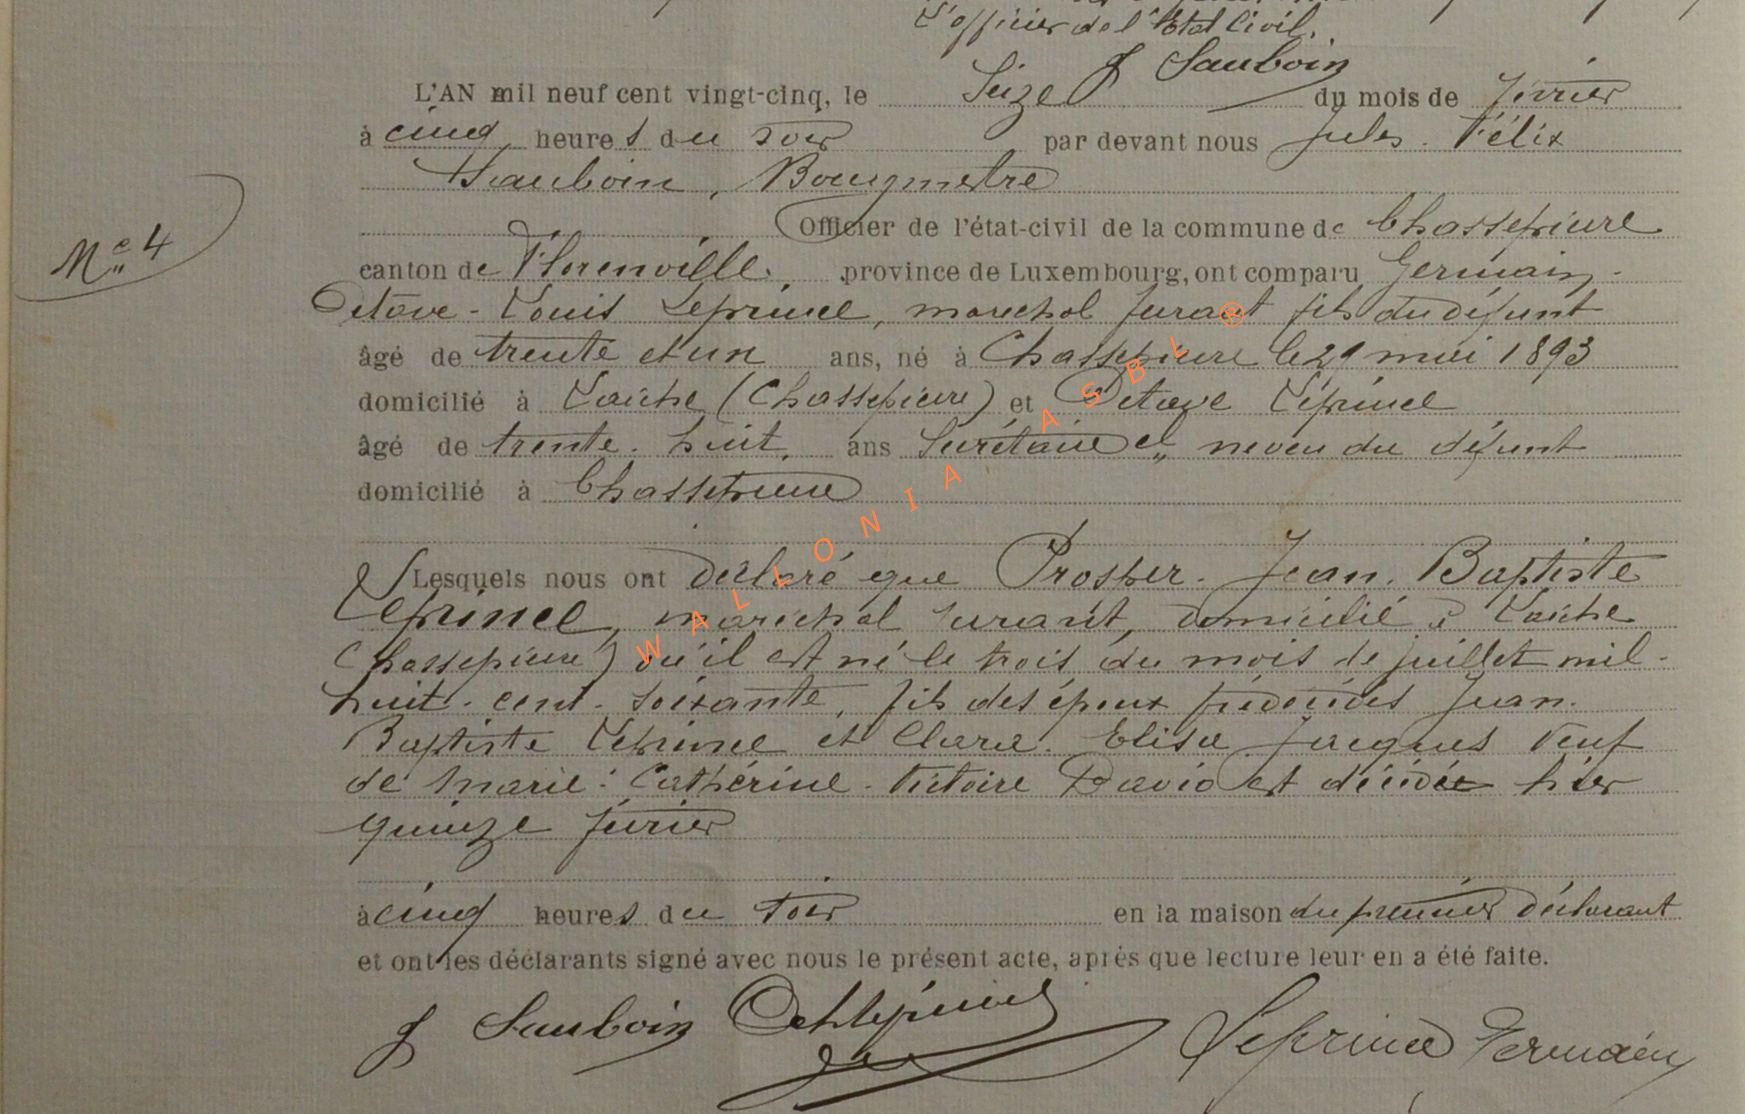 L'officier de l'Etat Civil.
J Sauboin
L'AN mil neuf cent vingt-cinq, le Seize du mois de février
à cinq heures du soir par devant nous Jules. Félix
Sauboin, Bourgmestre
Officier de l'état-civil de la commune de Chassepierre
canton de Florenville. province de Luxembourg, ont comparu Germain-
N° 4
Octave-Louis Leprince, maréchal ferrant fils du défunt
âgé de trente et un ans, né à Chassepierre le 29 mai 1893
domicilié à Laiche (Chassepierre) et Octave Léprince
âgé de trente-huit, ans Secrétaire cl, neveu du défunt
domicilié à Chassepierre
Lesquels nous ont déclaré que Prosper-Jean-Baptiste
Leprince, maréchal ferrant, domicilié à Laiche
(Chassepierre) qu'il est né le trois du mois de juillet mil-
huit-cent-soixante, fils des époux prédécédés Jean-
Baptiste Léprince et Clara-Elisa Jacques Veuf
de Marie-Cathérine-Victoire David est décédé hier
quinze février
à cinq heures du soir en la maison du premier déclarant
et ont les déclarants signé avec nous le présent acte, après que lecture leur en a été faite.
J Sauboin Oct Léprince Leprince Germain
WALLONIA ASBL ®